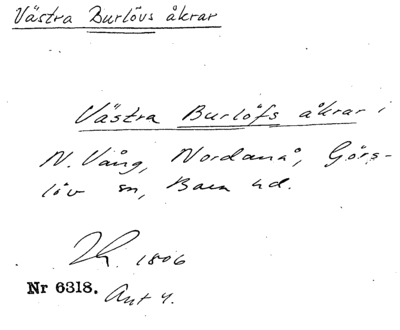 Västra Burlövs åkrar
Västra Burlöfs åkrar i
N. Vång, Nordanå, Görs-
löv sn, Bara hd.
1806
Nr 6318. Akt 4.